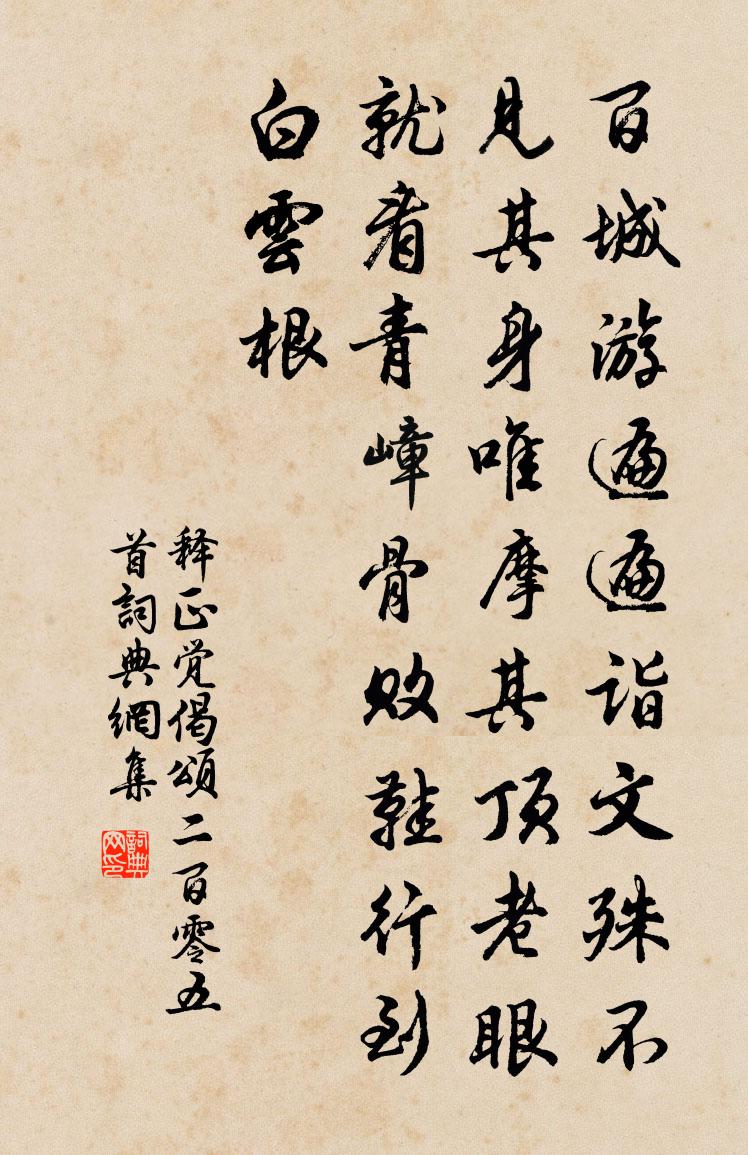 百城游遍遍诣文殊不
见其身唯摩其顶老眼
就看青嶂骨败鞋行到
白雲根
释正觉偈頌二百零五
首詞典網集
詞典网印